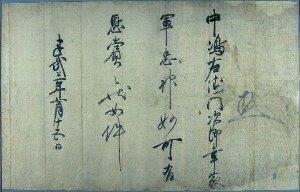 中嶋右衛門次郎幸家
軍忠神妙可有
恩賞之状如件
建武二年 月十 日